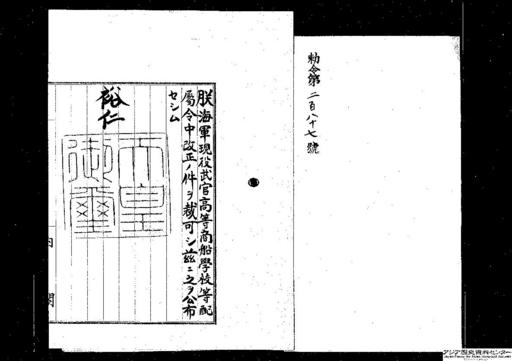 勅令第二百八十七號
朕海軍現役武官高等商船學校等配
屬令中改正ノ件ヲ裁可シ茲ニ之ヲ公布
セシム
裕仁
天皇
御璽
内閣
アジア歴史資料センター